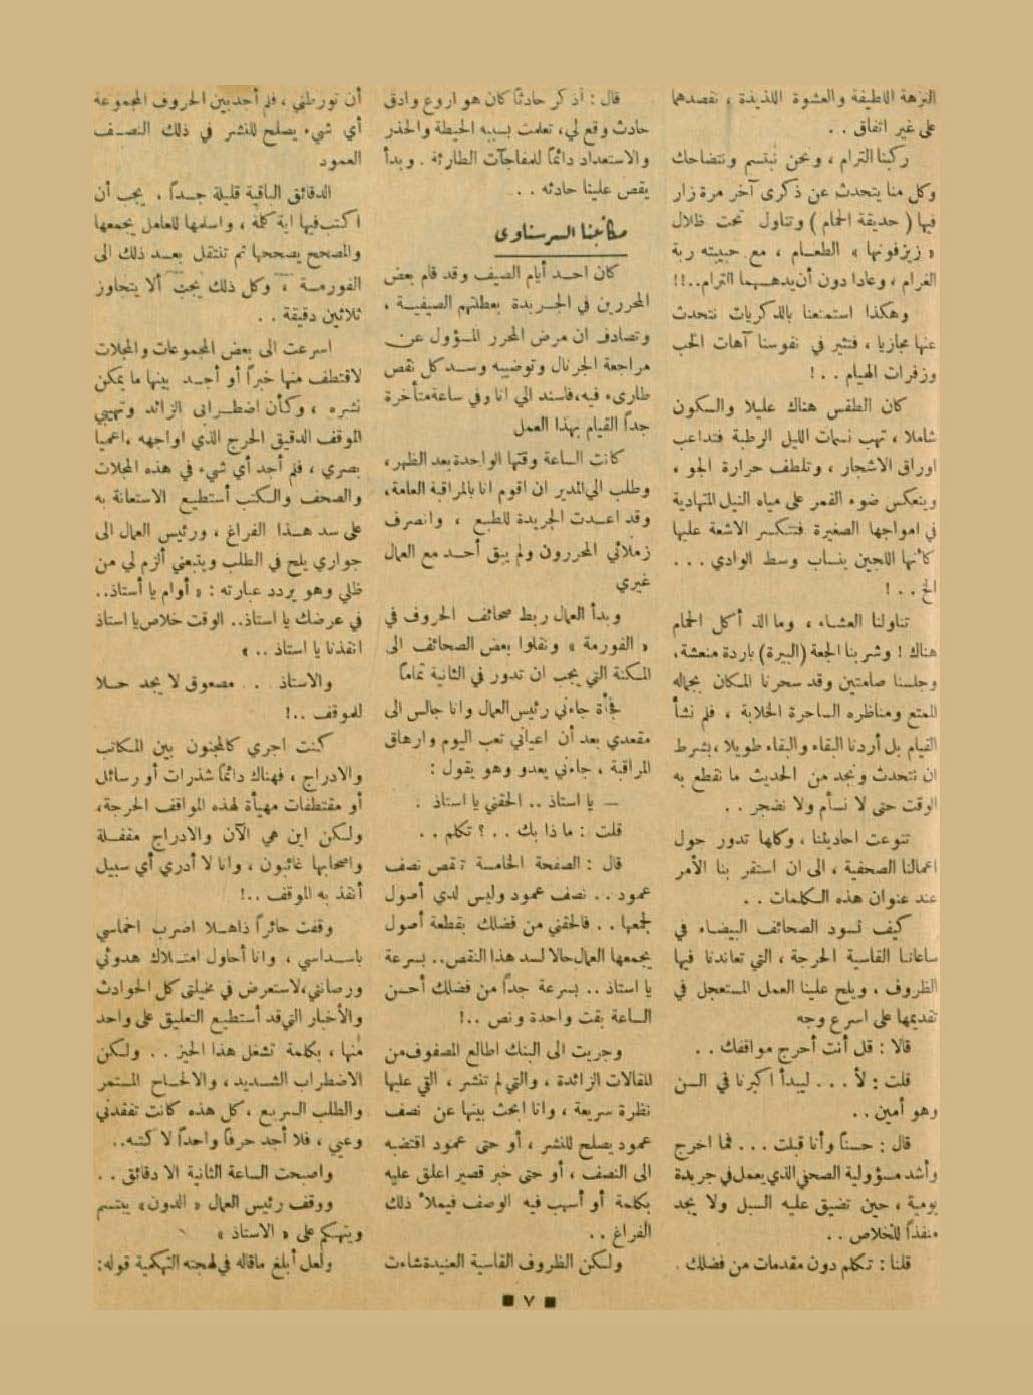 النزهة اللطيفة والعشوة اللذيذة ، نقصدهما
على غير اتفاق . .
ركبنا الترام ، ونحن نبتسم ونتضاحك
وكل منا يتحدث عن ذكرى آخر مرة زار
فيها ( حديقة الحمام ) وتناول تحت ظلال
« زيزفونها » الطعام ، مع حبيبته ربة
الغرام ، وعادا دون أن يدهسهما الترام..!!
وهكذا استمتعنا بالذكريات نتحدث
عنها مجازيا ، فتثير في نفوسنا آهات الحب
وزفرات الهيام . . !
كان الطقس هناك عليلا والسكون
شاملا ، تهب نسمات الليل الرطبة فتداعب
اوراق الاشجار ، وتلطف حرارة الجو ،
وينعكس ضوء القمر على مياه النيل المتهادية
في امواجها الصغيرة فتتكسر الاشعة عليها
كأنها اللجين ينساب وسط الوادي . . .
الخ . . !
تناولنا العشاء ، وما الذ أكل الحمام
هناك ! وشربنا الجعة (البيرة) باردة منعشة،
وجلسنا صامتين وقد سحرنا المكان بجماله
الممتع ومناظره الساحرة الخلابة ، فلم نشأ
القيام بل أردنا البقاء والبقاء طويلا ، بشرط
ان نتحدث ونجد من الحديث ما نقطع به
الوقت حتى لا نسأم ولا نضجر . .
تنوعت احاديثنا ، وكلها تدور حول
اعمالنا الصحفية ، الى ان استقر بنا الأمر
عند عنوان هذه الكلمات . .
كيف نسود الصحائف البيضاء في
ساعاتنا القاسية الحرجة ، التي تعاندنا فيها
الظروف ، ويلح علينا العمل المستعجل في
تقديمها على اسرع وجه
قالا : قل أنت أحرج مواقفك . .
قلت : لأ . . . ليبدأ اكبرنا في السن
وهو أمين . .
قال : حسناً وأنا قبلت . . . فما احرج
وأشد مسؤولية الصحفي الذي يعمل في جريدة
يومية ، حين تضيق عليه السبل ولا يجد
منفذاً للخلاص . .
قلنا : تكلم دون مقدمات من فضلك .
قال : أذكر حادثاً كان هو اروع وادق
حادث وقع لي، تعلمت بسببه الحيطة والحذر
والاستعداد دائماً للمفاجآت الطارئة . وبدأ
يقص علينا حادثه . .
مكاتبنا السرسناوى
كان احد أيام الصيف وقد قام بعض
المحررين في الجريدة بعطلتهم الصيفية ،
وتصادف ان مرض المحرر المسؤول عن
مراجعة الجرنال وتوضيبه وسد كل نقص
طارىء فيه، فاسند الي انا وفي ساعة متأخرة
جداً القيام بهذا العمل
كانت الساعة وقتها الواحدة بعد الظهر،
وطلب الي المدير ان اقوم انا بالمراقبة العامة،
وقد اعدت الجريدة للطبع ، وانصرف
زملائي المحررون ولم يبق أحد مع العمال
غيري
وبدأ العمال ربط صحائف الحروف في
« الفورمة » ونقلوا بعض الصحائف الى
المكنة التي يجب ان تدور في الثانية تماماً
فجأة جاءني رئيس العمال وانا جالس الى
مقعدي بعد أن اعياني تعب اليوم وارهاق
المراقبة ، جاءني يعدو وهو يقول :
— يا استاذ .. الحقني يا استاذ .
قلت : ماذا بك . . ؟ تكلم . .
قال : الصفحة الخامسة تنقص نصف
عمود . . نصف عمود وليس لدي أصول
لجمعها . . فالحقني من فضلك بقطعة أصول
يجمعها العمال حالا لسد هذا النقص.. بسرعة
يا استاذ .. بسرعة جداً من فضلك أحسن
الساعة بقت واحدة ونص ..!
وجريت الى البنك اطالع المصفوف من
المقالات الزائدة ، والتي لم تنشر ، التي عليها
نظرة سريعة ، وانا ابحث بينها عن نصف
عمود يصلح للنشر ، أو حتى عمود اقتضبه
الى النصف ، أو حتى خبر قصير اعلق عليه
بكلمة أو أسهب فيه الوصف فيملأ ذلك
الفراغ . .
ولكن الظروف القاسية العنيدة شاءت
أن تورطني ، فلم أجد بين الحروف المجموعة
أي شيء يصلح للنشر في ذلك النصف
العمود
الدقائق الباقية قليلة جداً . يجب أن
اكتب فيها اية كلمة ، واسلمها للعامل يجمعها
والمصحح يصححها ثم تنتقل بعد ذلك الى
الفورمة ، وكل ذلك يجب ألا يتجاوز
ثلاثين دقيقة . .
اسرعت الى بعض المجموعات والمجلات
لاقتطف منها خبراً أو أجد بينها ما يمكن
نشره ، وكأن اضطرابي الزائد وتهيبي
الموقف الدقيق الحرج الذي اواجهه ، اعميا
بصري ، فلم أجد أي شيء في هذه المجلات
والصحف والكتب أستطيع الاستعانة به
على سد هذا الفراغ ، ورئيس العمال الى
جواري يلح في الطلب ويتبعني ألزم لي من
ظلي وهو يردد عبارته : « أوام يا أستاذ..
في عرضك يا استاذ.. الوقت خلاص يا استاذ
انقذنا يا استاذ .. »
والاستاذ . . مصعوق لا يجد حلا
للموقف ..!
كنت اجري كالمجنون بين المكاتب
والادراج ، فهناك دائماً شذرات أو رسائل
أو مقتطفات مهيأة لهذه المواقف الحرجة،
ولكن اين هي الآن والادراج مقفلة
واصحابها غائبون ، وانا لا أدري أي سبيل
أنفذ به الموقف ..!
وقفت حائراً ذاهلا اضرب اخماسي
باسداسي ، وانا أحاول امتلاك هدوئي
ورصانتي، لاستعرض في مخيلتي كل الحوادث
والأخبار التي قد أستطيع التعليق على واحد
منها ، بكلمة تشغل هذا الحيز . . ولكن
الاضطراب الشديد ، والالحاح المستمر
والطلب السريع ، كل هذه كانت تفقدني
وعيي ، فلا أجد حرفاً واحداً لاكتبه..
واصبحت الساعة الثانية الا دقائق . .
ووقف رئيس العمال « الدون » يبتسم
ويتهكم على « الاستاذ »
ولعل أبلغ ما قاله في لهجته التهكمية قوله:
٧